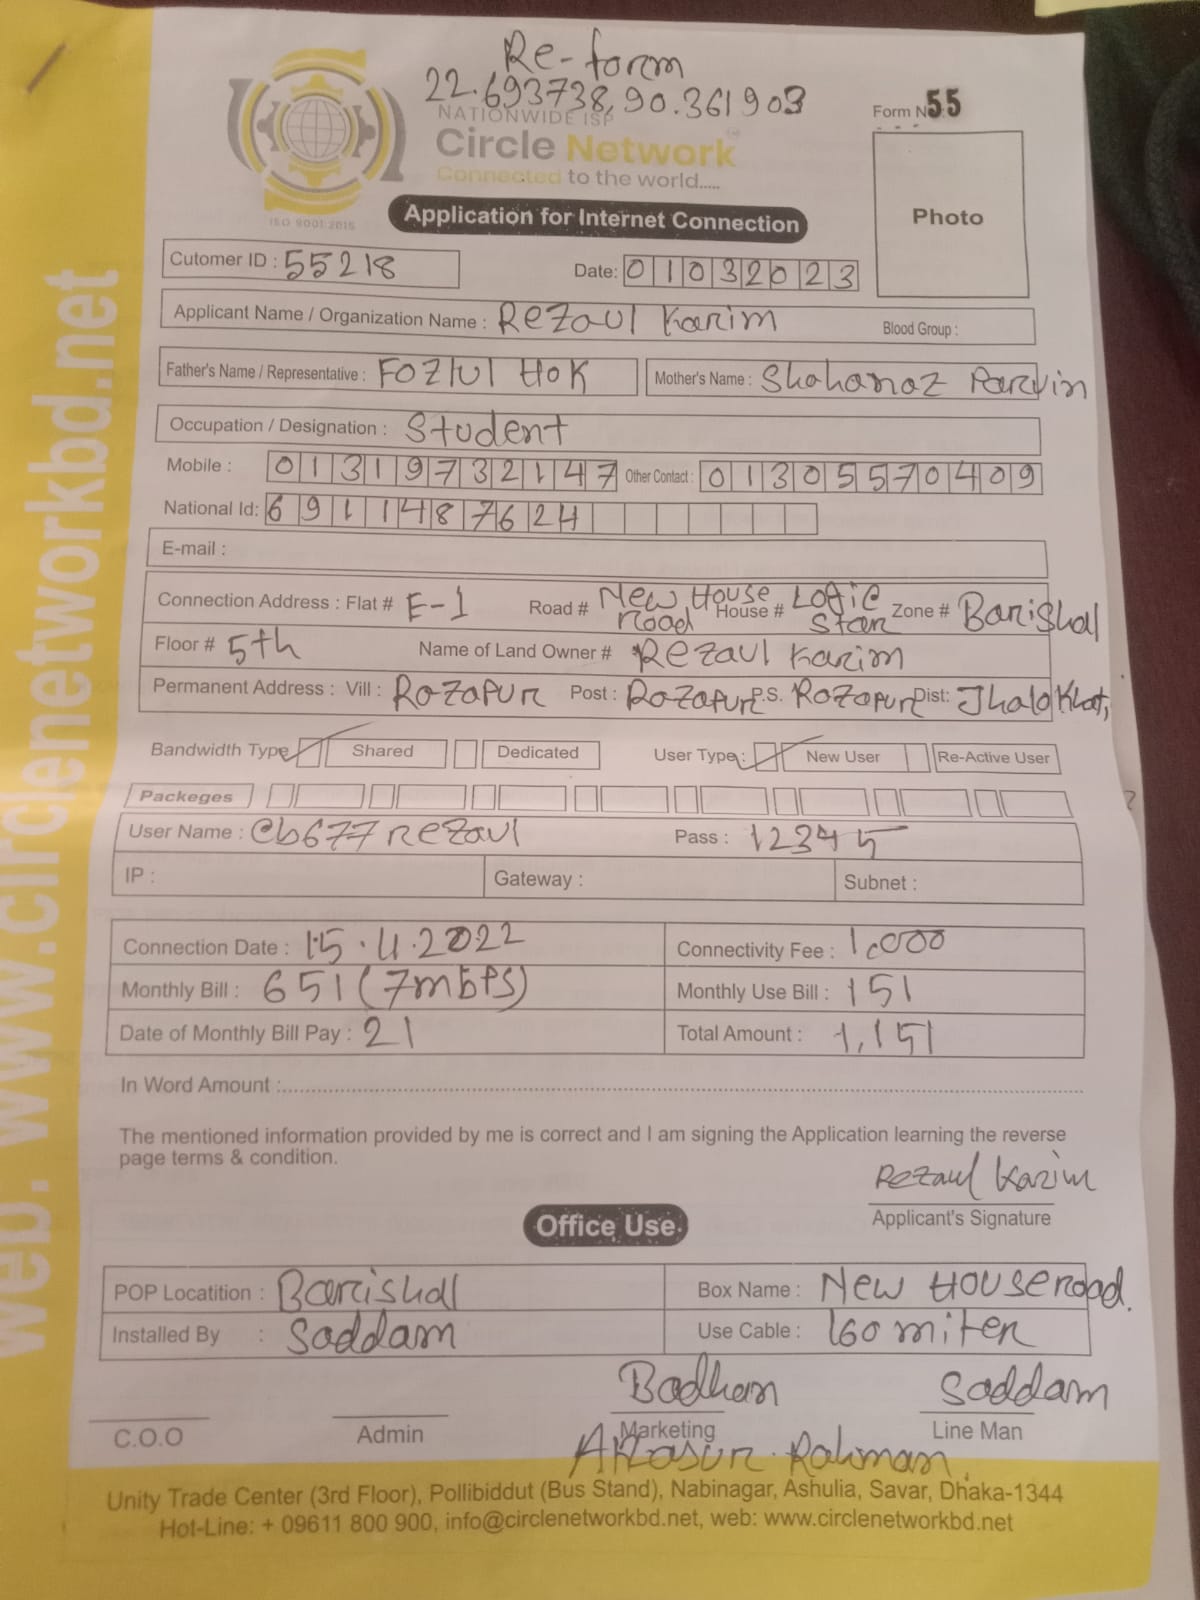 Re-form
22.693738, 90.361903
NATIONWIDE ISP
Circle Network
Connected to the world.....
ISO 9001:2015
Form No 55
Photo
Application for Internet Connection
Cutomer ID : 55218 Date: 01032023
Applicant Name / Organization Name : Rezaul Karim Blood Group :
Father's Name / Representative : Fozlul Hok Mother's Name : Shahanaz Parvin
Occupation / Designation : Student
Mobile : 01319732147 Other Contact : 01305570409
National Id: 6911487624
E-mail :
Connection Address : Flat # E-1 Road # New House Road House # Zone # Barishal
Floor # 5th Name of Land Owner # Rezaul Karim
Permanent Address : Vill : Rozapur Post : Rozapur P.S. Rozapur Dist: Jhalokhati
Bandwidth Type Shared Dedicated User Type: New User Re-Active User
Packeges
User Name : cb677rezaul Pass : 12345
IP : Gateway : Subnet :
Connection Date : 15.4.2022 Connectivity Fee : 1,000
Monthly Bill : 651 (7mbps) Monthly Use Bill : 151
Date of Monthly Bill Pay : 21 Total Amount : 1,151
In Word Amount :
The mentioned information provided by me is correct and I am signing the Application learning the reverse
page terms & condition.
Rezaul Karim
Applicant's Signature
Office Use
POP Locatition : Barishal Box Name : New House road.
Installed By : Saddam Use Cable : 160 miter
Badhan Saddam
C.O.O Admin Marketing Line Man
Rahman
Unity Trade Center (3rd Floor), Pollibiddut (Bus Stand), Nabinagar, Ashulia, Savar, Dhaka-1344
Hot-Line: + 09611 800 900, info@circlenetworkbd.net, web: www.circlenetworkbd.net
web. www.circlenetworkbd.net